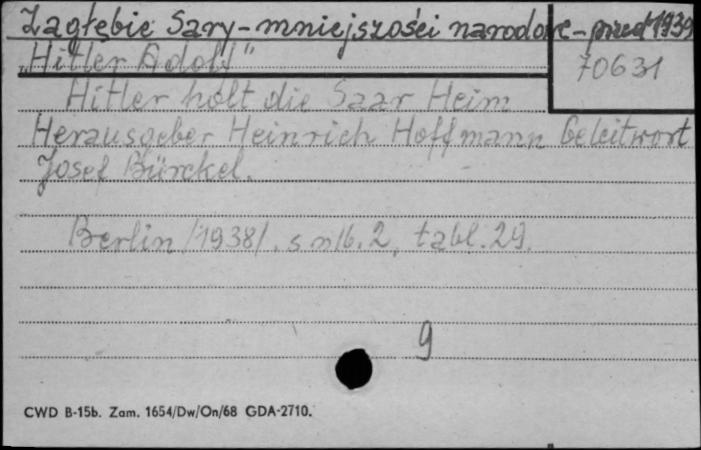 Zagłębie Sary - mniejszości narodowe - przed 1939
„Hitler Adolf"
70631
Hitler holt die Saar Heim
Herausgeber Heinrich Hoffmann Geleitwort
Josef Bürckel.
Berlin /1938/. s nlb. 2, tabl. 29.
9
CWD B-15b. Zam. 1654/Dw/On/68 GDA-2710.